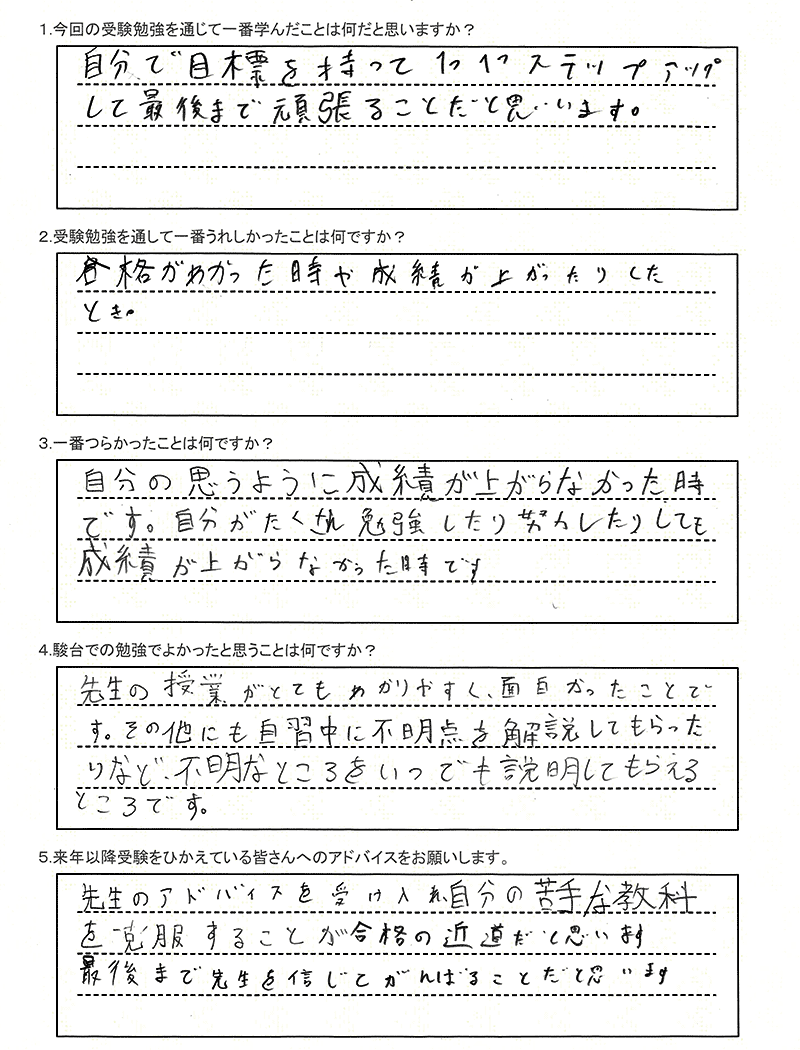 1.今回の受験勉強を通じて一番学んだことは何だと思いますか？
自分で目標を持って1つ1つステップアップ
して最後まで頑張ることだと思います。
2.受験勉強を通して一番うれしかったことは何ですか？
合格がわかった時や成績が上がったりした
とき。
3.一番つらかったことは何ですか？
自分の思うように成績が上がらなかった時
です。自分がたくさん勉強したり努力したりしても
成績が上がらなかった時です
4.駿台での勉強でよかったと思うことは何ですか？
先生の授業がとてもわかりやすく、面白かったことで
す。その他にも自習中に不明点を解説してもらった
りなど、不明なところをいつでも説明してもらえる
ところです。
5.来年以降受験をひかえている皆さんへのアドバイスをお願いします。
先生のアドバイスを受け入れ自分の苦手な教科
を克服することが合格の近道だと思います
最後まで先生を信じてがんばることだと思います